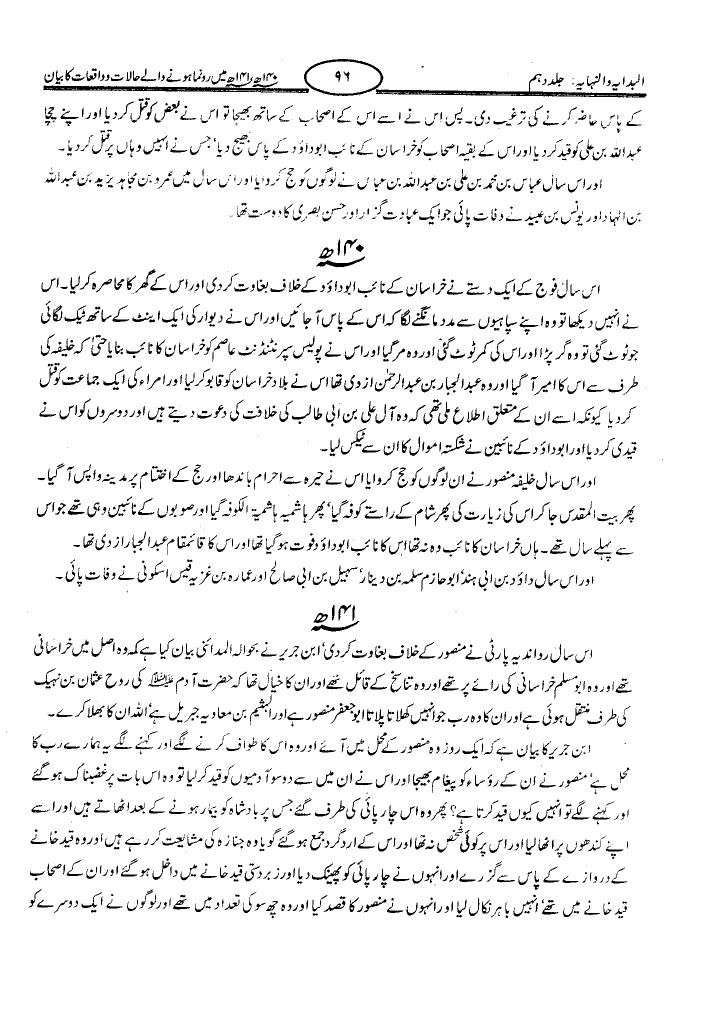 البدایہ والنہایہ: جلد دہم
۹۶
۱۴۰ھ، ۱۴۱ھ میں رونما ہونے والے حالات و واقعات کا بیان
کے پاس حاضر کرنے کی ترغیب دی۔ پس اس نے اسے اس کے اصحاب کے ساتھ بھیجا تو اس نے بعض کو قتل کر دیا اور اپنے چچا
عبداللہ بن علی کو قید کر دیا اور اس کے بقیہ اصحاب کو خراسان کے نائب ابوداؤد کے پاس بھیج دیا' جس نے انہیں وہاں پر قتل کر دیا۔
اور اس سال عباس بن محمد بن علی بن عبداللہ بن عباس نے لوگوں کو حج کروایا اور اس سال میں عمرو بن مجاہد یزید بن عبداللہ
بن الہاد اور یونس بن عبید نے وفات پائی جو ایک عبادت گزار اور حسن بصری کا دوست تھا۔
۱۴۰ھ
اس سال فوج کے ایک دستے نے خراسان کے نائب ابوداؤد کے خلاف بغاوت کر دی اور اس کے گھر کا محاصرہ کر لیا۔ اس
نے انہیں دیکھا تو وہ اپنے سپاہیوں سے مدد مانگنے لگا کہ اس کے پاس آ جائیں اور اس نے دیوار کی ایک اینٹ کے ساتھ ٹیک لگائی
جو ٹوٹ گئی تو وہ گر پڑا اور اس کی کمر ٹوٹ گئی اور وہ مر گیا اور اس نے پولیس سپرنٹنڈنٹ عاصم کو خراسان کا نائب بنایا حتیٰ کہ خلیفہ کی
طرف سے اس کا امیر آ گیا اور وہ عبدالجبار بن عبدالرحمٰن ازدی تھا اس نے بلاد خراسان کو قابو کر لیا اور امراء کی ایک جماعت کو قتل
کر دیا کیونکہ اسے ان کے متعلق اطلاع ملی تھی کہ وہ آل علی بن ابی طالب کی خلافت کی دعوت دیتے ہیں اور دوسروں کو اس نے
قیدی کر دیا اور ابوداؤد کے نائبین نے شکستہ اموال کا ان سے ٹیکس لیا۔
اور اس سال خلیفہ منصور نے ان لوگوں کو حج کروایا اس نے حیرہ سے احرام باندھا اور حج کے اختتام پر مدینہ واپس آ گیا۔
پھر بیت المقدس جا کر اس کی زیارت کی پھر شام کے راستے کوفہ گیا' پھر ہاشمیہ ہاشمیۃ الکوفہ گیا اور صوبوں کے نائبین وہی تھے جو اس
سے پہلے سال تھے۔ ہاں خراسان کا نائب وہ نہ تھا اس کا نائب ابوداؤد فوت ہو گیا تھا اور اس کا قائمقام عبدالجبار ازدی تھا۔
اور اس سال داؤد بن ابی ہند' ابوحازم سلمہ بن دینار' سہیل بن ابی صالح اور عمارہ بن غزیہ قیس اسکونی نے وفات پائی۔
۱۴۱ھ
اس سال رواندیہ پارٹی نے منصور کے خلاف بغاوت کر دی' ابن جریر نے بحوالہ المدائنی بیان کیا ہے کہ وہ اصل میں خراسانی
تھے اور وہ ابومسلم خراسانی کی رائے پر تھے اور وہ تناسخ کے قائل تھے اور ان کا خیال تھا کہ حضرت آدم علیہ السلام کی روح عثمان بن نہیک
کی طرف منتقل ہوئی ہے اور ان کا وہ رب جو انہیں کھلاتا پلاتا ابوجعفر منصور ہے اور الہیثم بن معاویہ جبریل ہے' اللہ ان کا بھلا کرے۔
ابن جریر کا بیان ہے کہ ایک روز وہ منصور کے محل میں آئے اور وہ اس کا طواف کرنے لگے اور کہنے لگے یہ ہمارے رب کا
محل ہے' منصور نے ان کے رؤساء کو پیغام بھیجا اور اس نے ان میں سے دو سو آدمیوں کو قید کر لیا تو وہ اس بات پر غضبناک ہو گئے
اور کہنے لگے تو انہیں کیوں قید کرتا ہے؟ پھر وہ اس چارپائی کی طرف گئے جس پر بادشاہ کو بیمار ہونے کے بعد اٹھاتے ہیں اور اسے
اپنے کندھوں پر اٹھا لیا اور اس پر کوئی شخص نہ تھا اور اس کے اردگرد جمع ہو گئے گویا وہ جنازہ کی مشایعت کر رہے ہیں اور وہ قید خانے
کے دروازے کے پاس سے گزرے اور انہوں نے چارپائی کو پھینک دیا اور زبردستی قید خانے میں داخل ہو گئے اور ان کے اصحاب
قید خانے میں تھے' انہیں باہر نکال لیا اور انہوں نے منصور کا قصد کیا اور وہ چھ سو کی تعداد میں تھے اور لوگوں نے ایک دوسرے کو